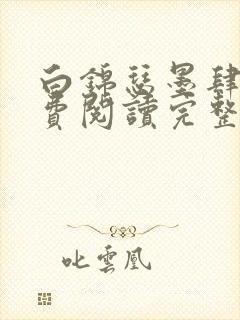 白錦瑟墨肆
費閱讀完整
叱雲凰